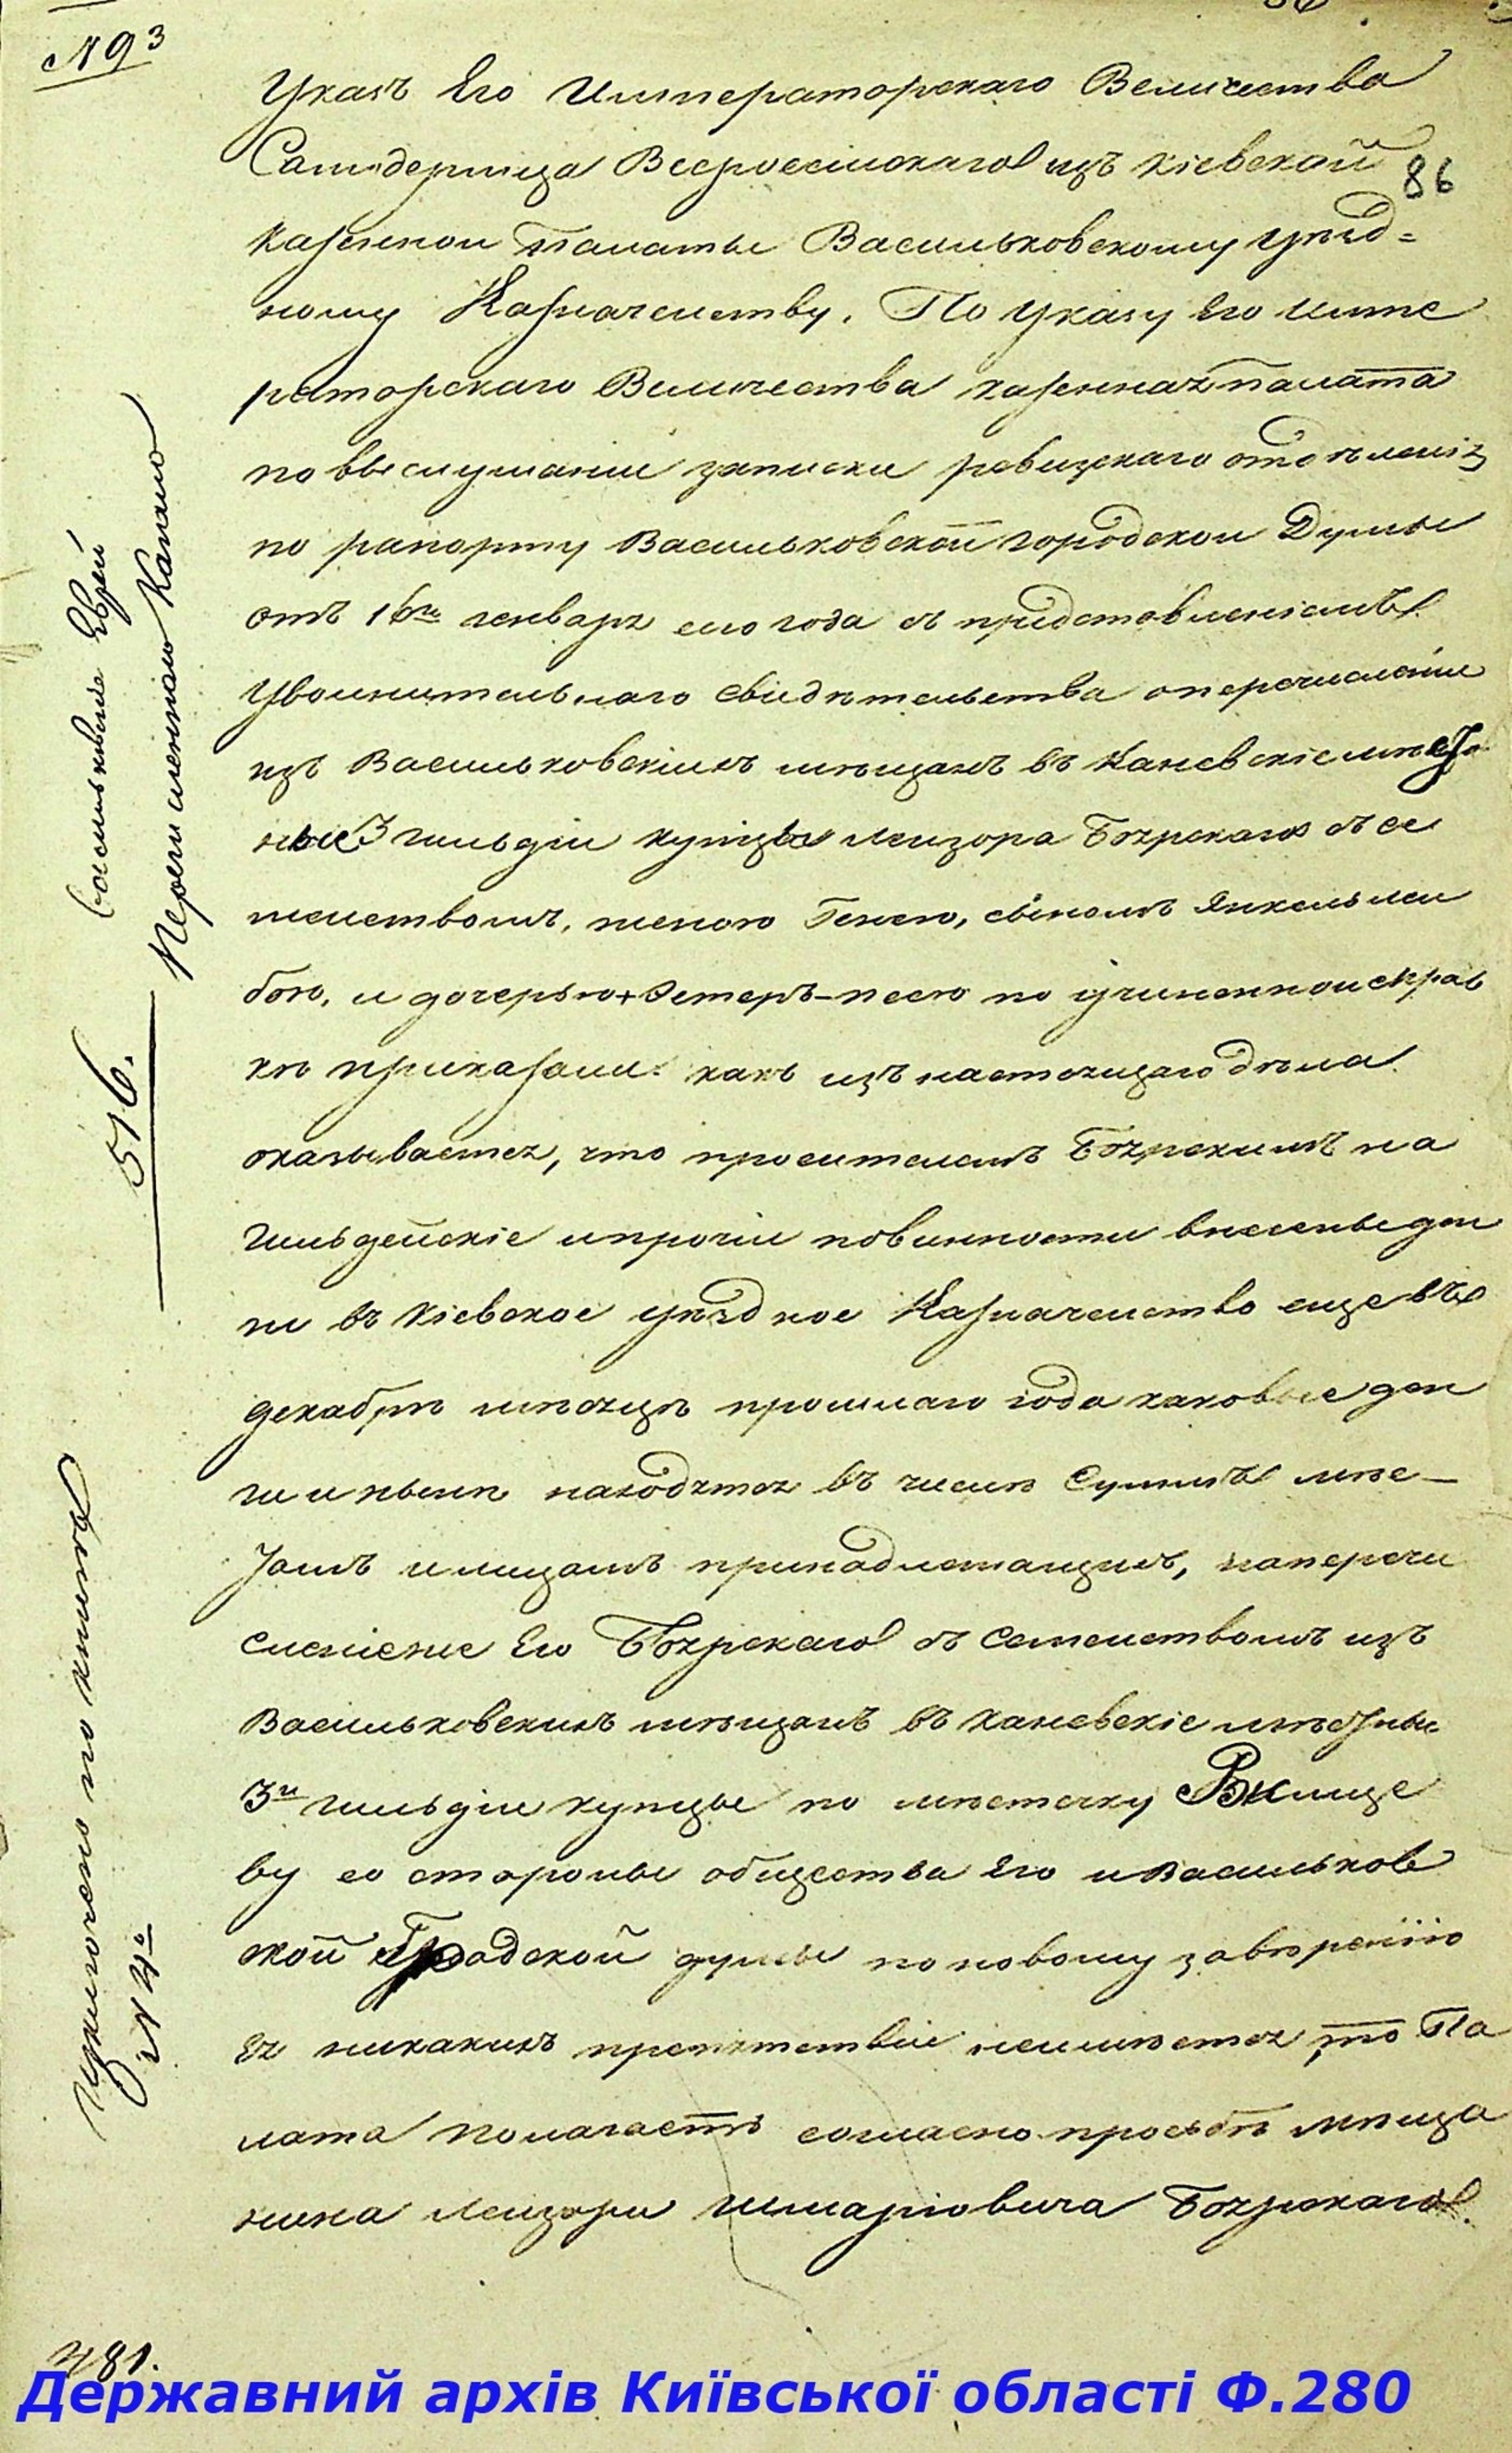 № 93
86
Указъ Его Императорскаго Величества
Самодержца Всероссійскаго изъ Кіевской
казенной Палаты Васильковскому уѣзд=
ному Казначейству. По указу Его Импе
раторскаго Величества казенная палата
по выслушаніи записки ревизскаго отдѣленія
по рапорту Васильковской городской Думы
отъ 16го генваря сего года съ представленіемъ
увольнительнаго свидѣтельства о перечисленіи
изъ Васильковскихъ мѣщанъ въ Каневскіе уѣзд
ные 3 гильдіи купцы Лейзора Боярскаго съ се
мействомъ, женою Генею, сыномъ Янкель Лей
бою, и дочерью Эстеръ-песею по учиненной справ
кѣ приказали: какъ изъ настоящаго дѣла
оказывается, что просителемъ Боярскимъ на
гильдейскіе и прочіи повинности внесены ден
ги въ Кіевское уѣздное Казначейство еще въ
декабрѣ мѣсяцѣ прошлаго года каковые ден
ги и нынѣ находятся въ числѣ суммъ мѣс–
тамъ и лицамъ принадлежащихъ, на перечи
сленіе Его Боярскаго съ Семействомъ изъ
Васильковскихъ мѣщанъ въ Каневскіе
3й гильдіи купцы по мѣстечку Ржище
ву со стороны общества Его и Васильков
ской Градской думы по новому завѣренію
Ея никакихъ препятствій неимѣется, то Па
лата полагаетъ согласно просьбѣ мѣща
нина Лейзора Шмаріовича Боярскаго
васильковскіе Еврей
Перечисленнаго
516.
по книгѣ
№ 4º
481.
Державний архів Київської області Ф.280